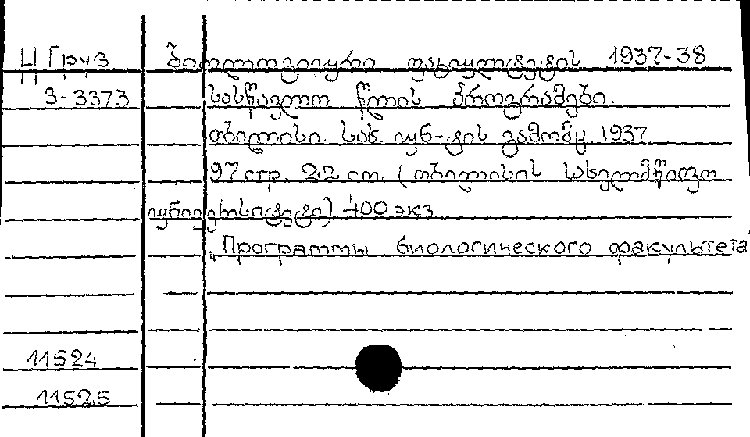 Ц Груз ბიოლოგიური ფაკულტეტის 1937-38
3-3373 სასწავლო წლის პროგრამები.
თბილისი. სახ. უნ-ტის გამომც. 1937
97 стр. 22 см. (თბილისის სახელმწიფო
უნივერსიტეტი) 400 экз
„Программы биологического факультета
11524
11525